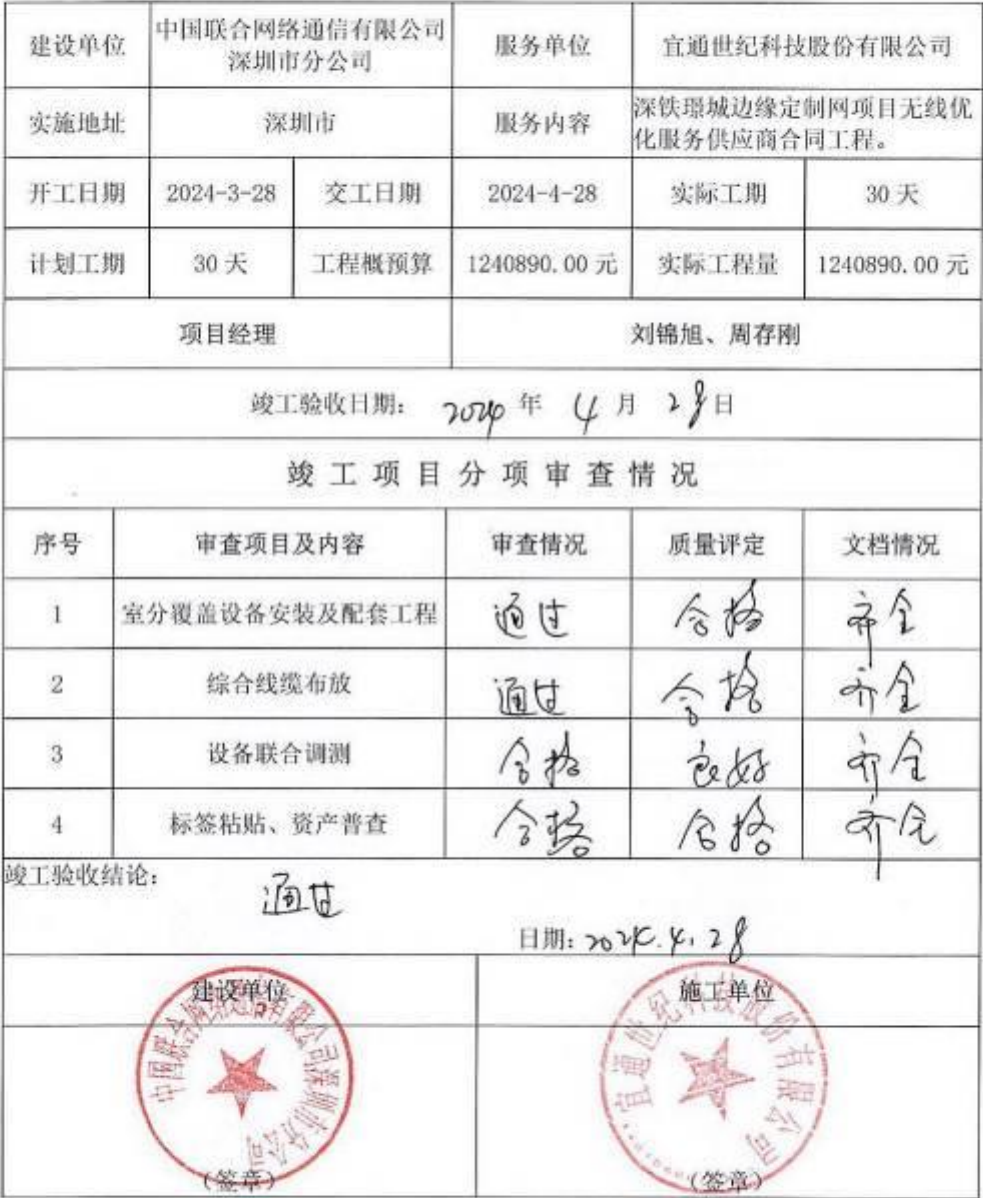 建设单位 中国联合网络通信有限公司深圳市分公司 服务单位 宜通世纪科技股份有限公司
实施地址 深圳市 服务内容 深铁璟城边缘定制网项目无线优化服务供应商合同工程。
开工日期 2024-3-28 交工日期 2024-4-28 实际工期 30天
计划工期 30天 工程概预算 1240890.00元 实际工程量 1240890.00元
项目经理 刘锦旭、周存刚
竣工验收日期: 2024 年 4 月 28 日
竣工项目分项审查情况
序号 审查项目及内容 审查情况 质量评定 文档情况
1 室分覆盖设备安装及配套工程 通过 合格 齐全
2 综合线缆布放 通过 合格 齐全
3 设备联合调测 合格 良好 齐全
4 标签粘贴、资产普查 合格 合格 齐全
竣工验收结论:
通过
日期: 2024.4.28
建设单位 施工单位
中国联合网络通信有限公司深圳市分公司 宜通世纪科技股份有限公司
(签章) (签章)